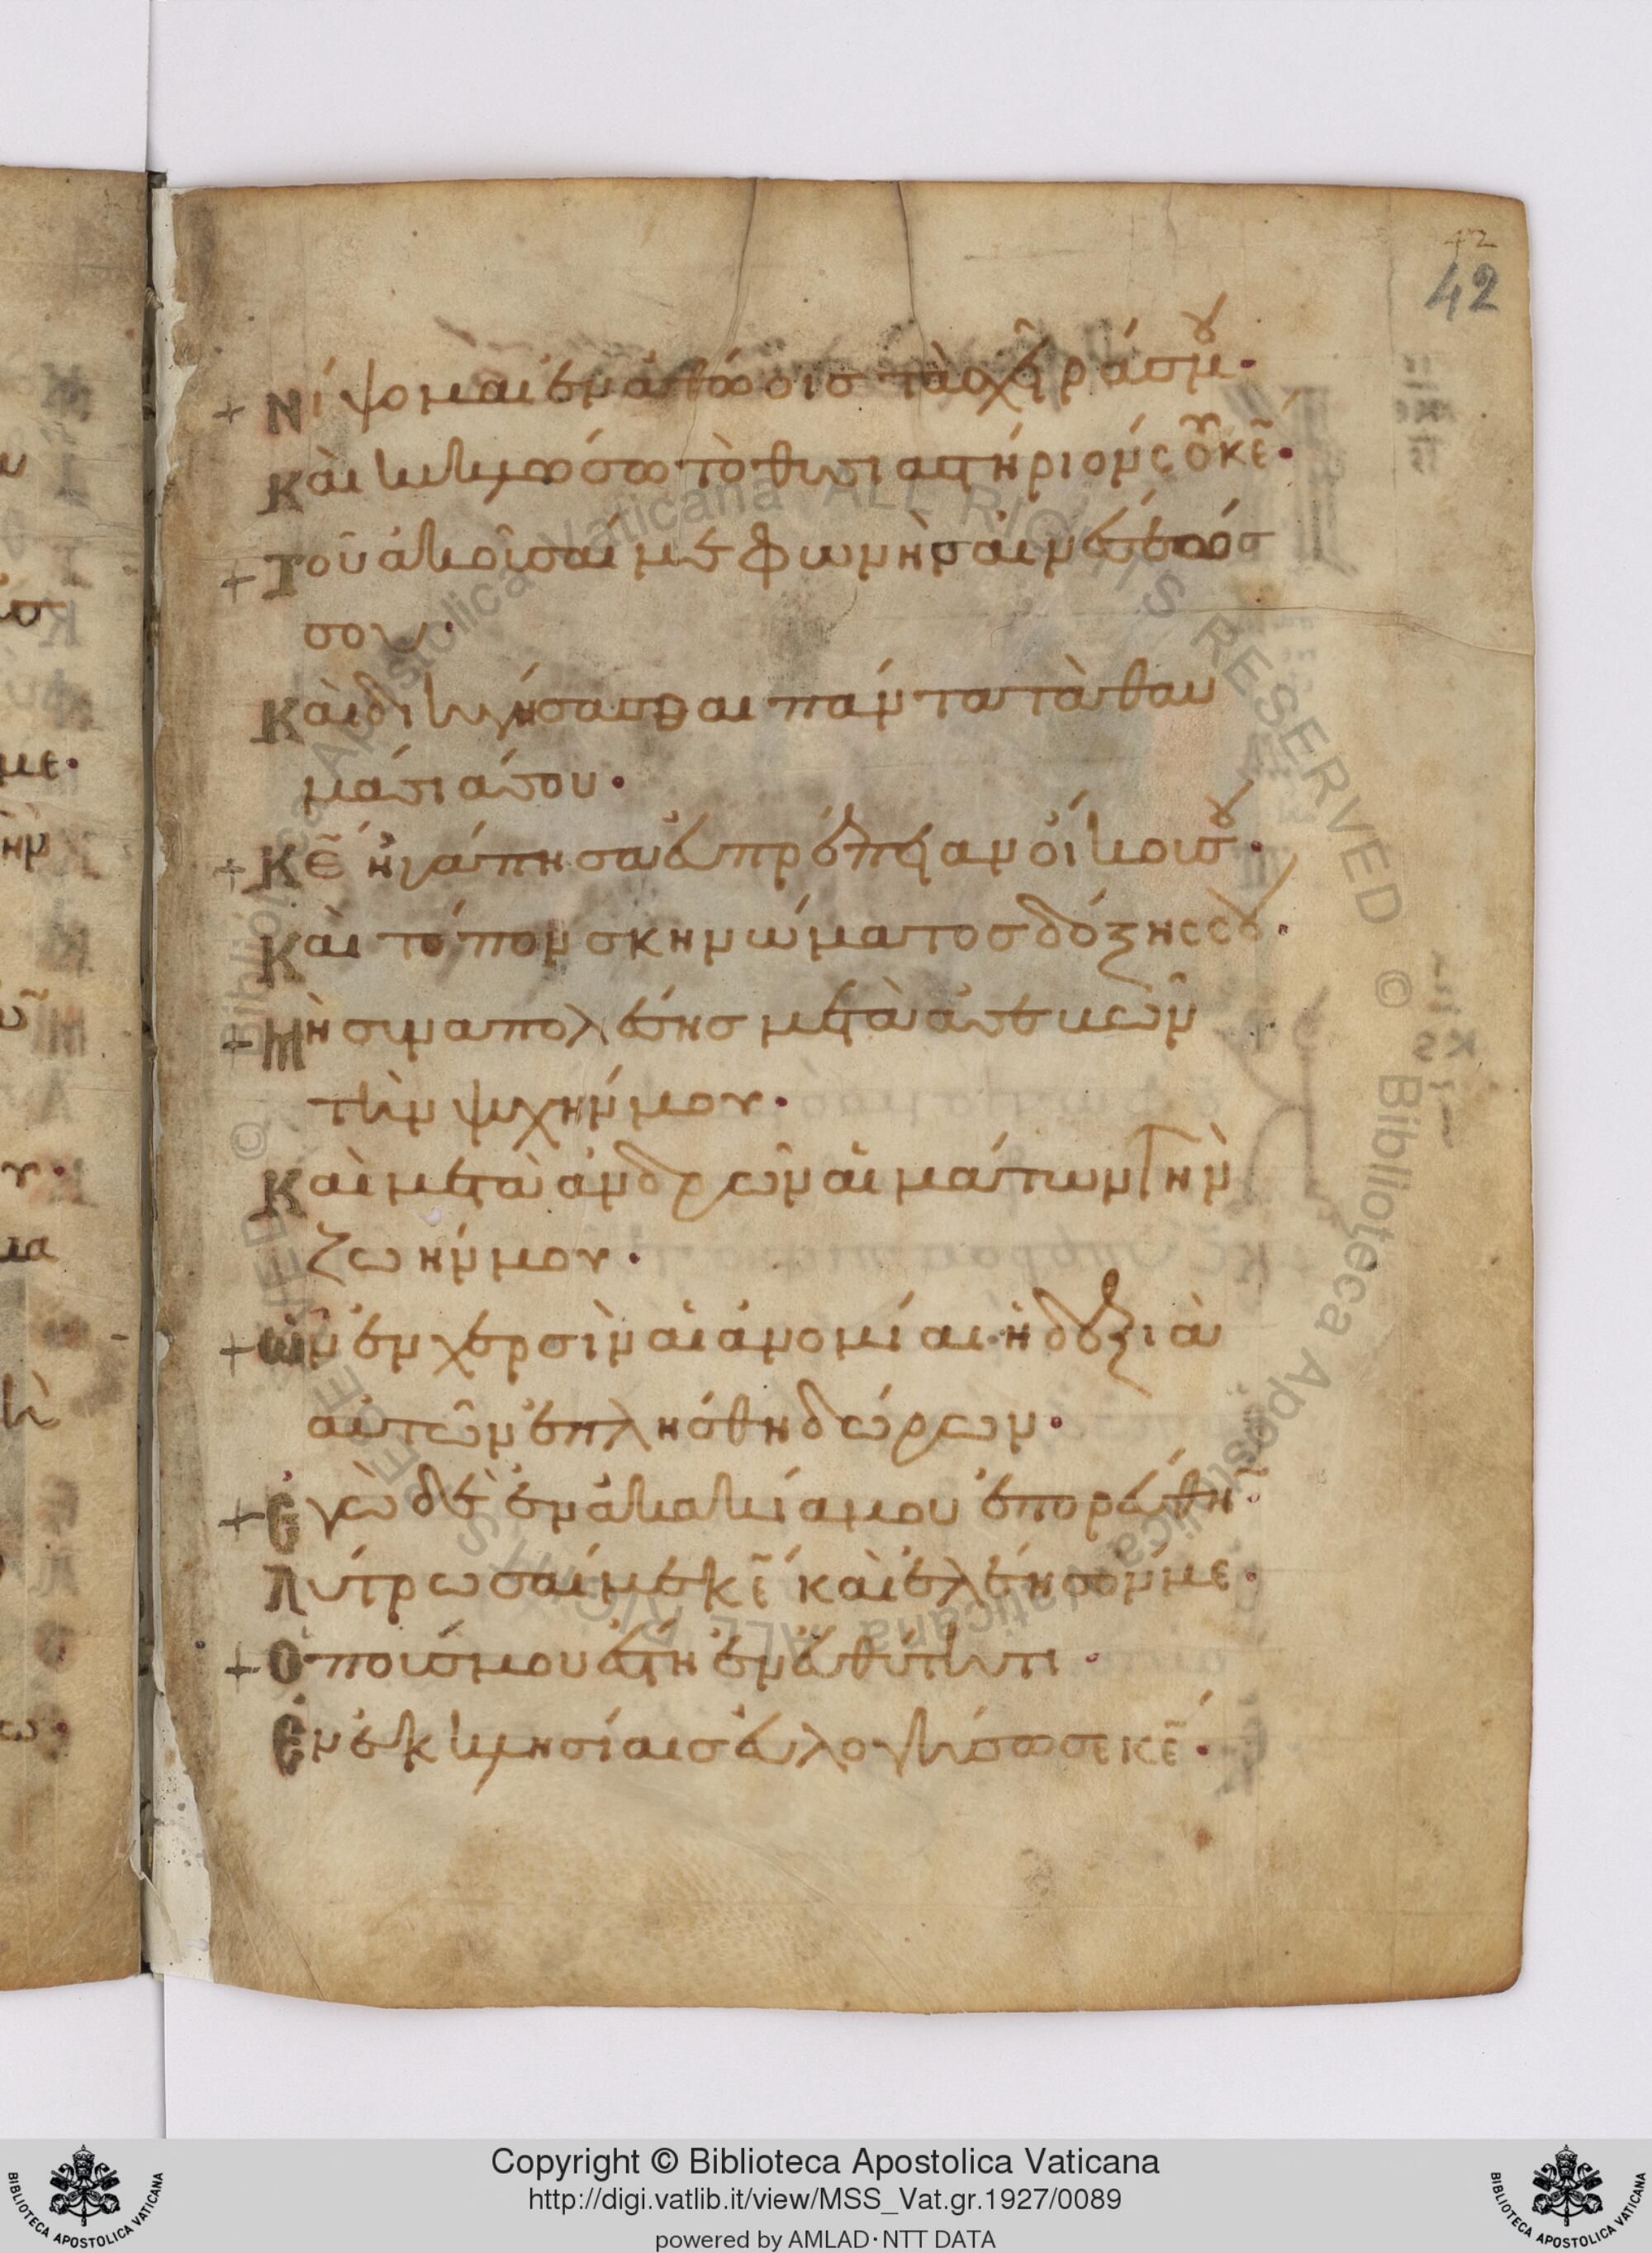 42
42
+ Νίψομαι ἐν ἀθώοις τὰς χεῖράς μου·
Καὶ κυκλώσω τὸ θυσιαστήριόν σου κε̅·
+ Τοῦ ἀκοῦσαί με φωνῆς αἰνέσεώς
σου·
Καὶ διηγήσασθαι πάντα τὰ θαυ
μάσιά σου·
+ Κε̅ ἠγάπησα εὐπρέπειαν οἴκου σου·
Καὶ τόπον σκηνώματος δόξης σου·
+ Μὴ συναπολέσης μετὰ ἀσεβῶν
τὴν ψυχήν μου·
Καὶ μετὰ ἀνδρῶν αἱμάτων τὴν
ζωήν μου·
+ ὧν ἐν χερσὶν αἱ ἀνομίαι· ἡ δεξιὰ
αὐτῶν ἐπλήσθη δώρων·
+ Ἐγὼ δὲ ἐν ἀκακία μου ἐπορεύθην·
Λύτρωσαί με κε̅ καὶ ἐλέησόν με·
+ Ὁ πούς μου ἔστη ἐν εὐθύτητι·
Ἐν ἐκκλησίαις εὐλογήσω σε κε̅·
Copyright © Biblioteca Apostolica Vaticana
http://digi.vatlib.it/view/MSS_Vat.gr.1927/0089
powered by AMLAD·NTT DATA
BIBLIOTECA APOSTOLICA VATICANA
BIBLIOTECA APOSTOLICA VATICANA